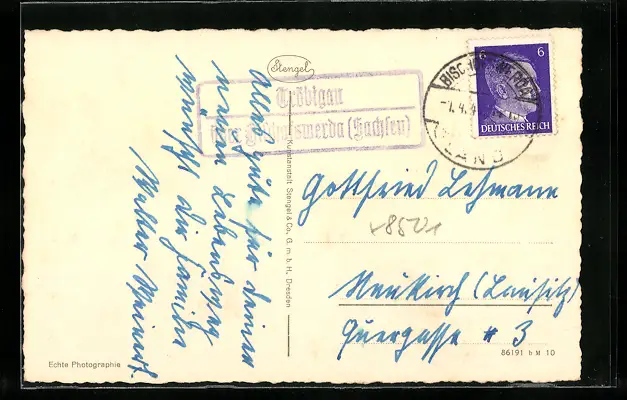 Stengel
Tröbigau
über Bischofswerda (Sachsen)
Alles gute für deinen
neuen Lebensweg
wünscht dir familie
Walter
Kunstanstalt Stengel & Co., G. m. b. H., Dresden
Echte Photographie
6
DEUTSCHES REICH
LAND
Gottfried Lehmann
8501
Neukirch (Lausitz)
Quergasse # 3
86191 b M 10